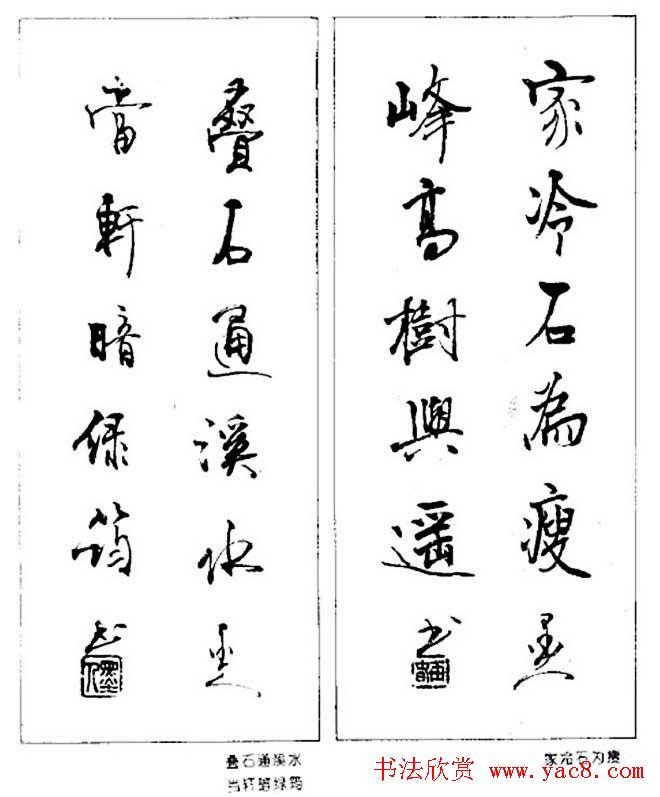 家冷石為瘦 墨人
峰高樹與遥 书
叠石通溪水 墨人
當軒暗绿筠 书
叠石通溪水
当轩暗绿筠
家冷石为瘦
书法欣赏 www.yac8.com